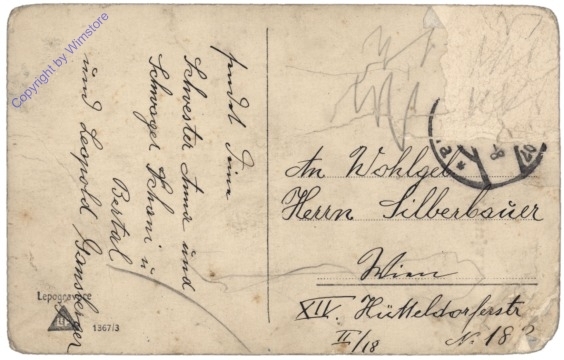 sendet Deine
Schwester Anna und
Schwager Schani u
Bertal
und Leopold Gansberger
An Wohlgeb
Herrn Silberbauer
Wien
XIV. Hütteldorferstr
N. 182
II/18
Lepogravure
1367/3
Copyright by Wimstore